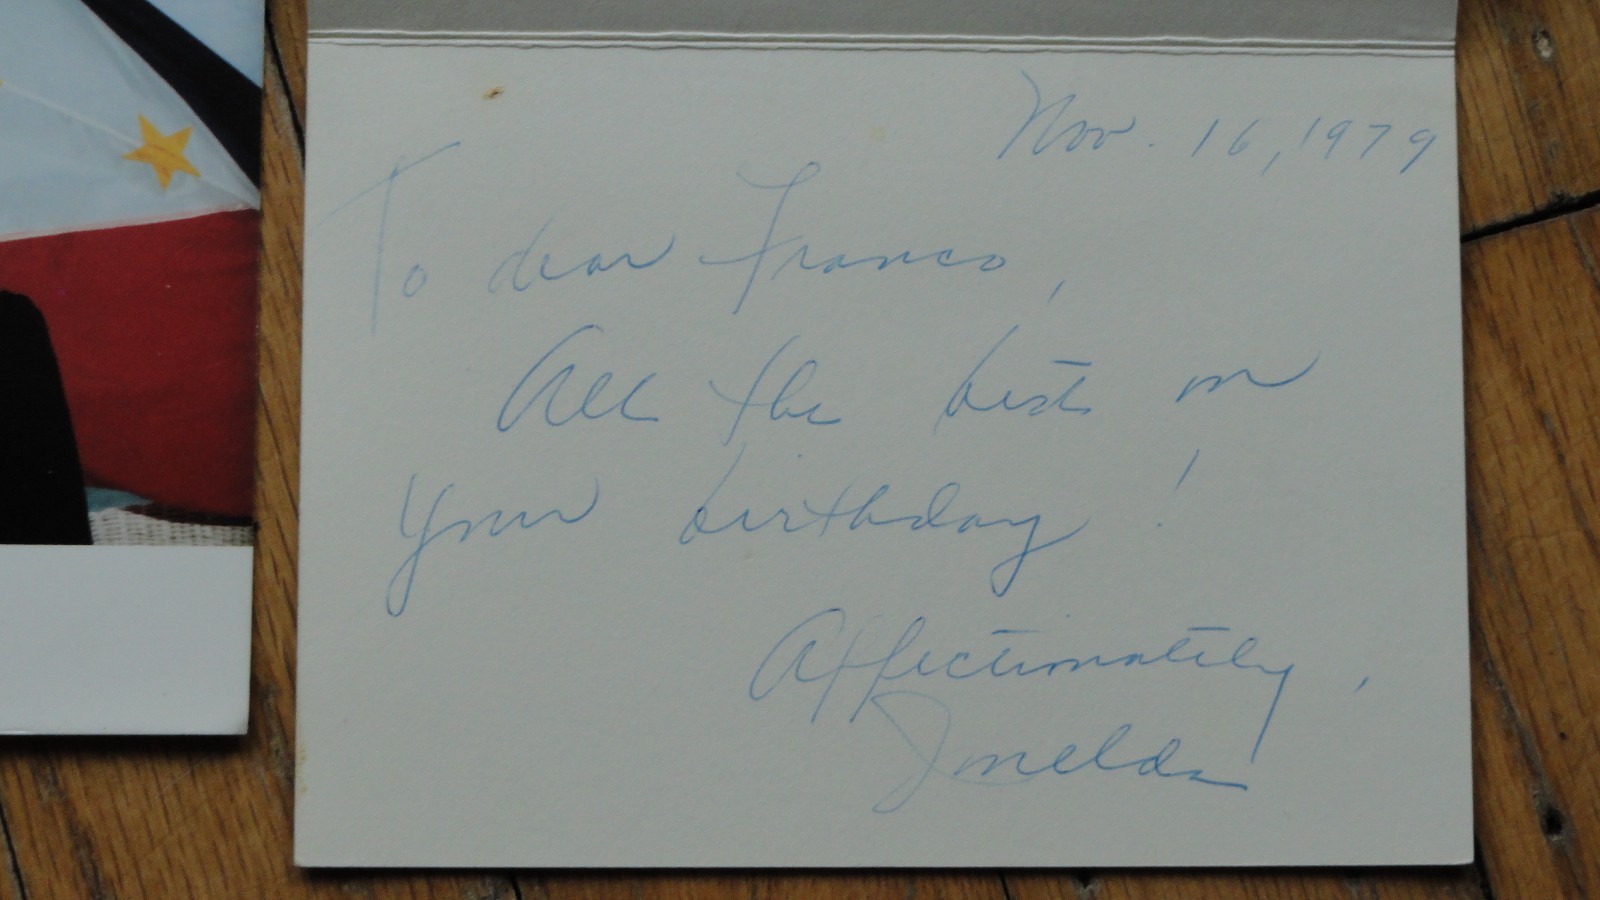 Nov. 16, 1979
To dear Franco,
All the best on
your birthday!
Affectionately,
Imelda